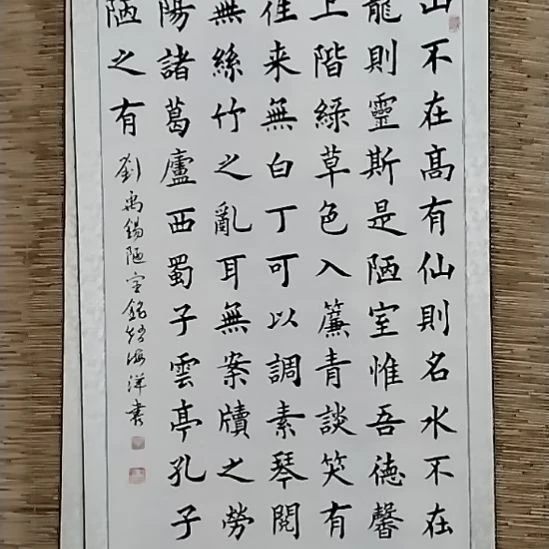 山不在高有仙則名水不在
龍則靈斯是陋室惟吾德馨
上階綠草色入簾青談笑有
往来無白丁可以調素琴閱
無絲竹之亂耳無案牘之勞
陽諸葛廬西蜀子雲亭孔子
陋之有
劉禹錫陋室銘海洋書